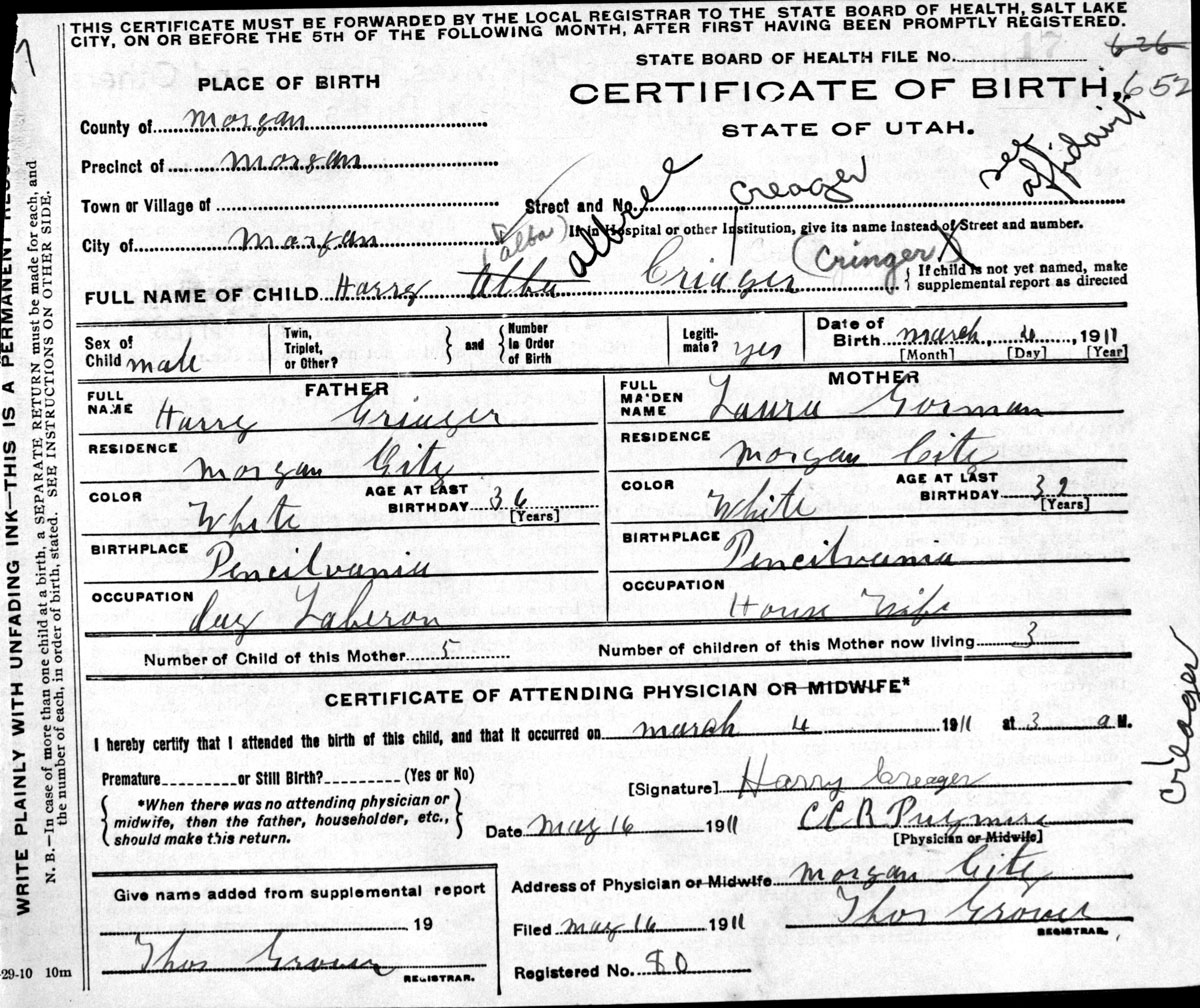 THIS CERTIFICATE MUST BE FORWARDED BY THE LOCAL REGISTRAR TO THE STATE BOARD OF HEALTH, SALT LAKE
CITY, ON OR BEFORE THE 5TH OF THE FOLLOWING MONTH, AFTER FIRST HAVING BEEN PROMPTLY REGISTERED.
WRITE PLAINLY WITH UNFADING INK—THIS IS A PERMANENT
N. B.—In case of more than one child at a birth, a SEPARATE RETURN must be made for each, and
the number of each, in order of birth, stated. SEE INSTRUCTIONS ON OTHER SIDE.
STATE BOARD OF HEALTH FILE No. 626
652
PLACE OF BIRTH
CERTIFICATE OF BIRTH,
STATE OF UTAH.
County of Morgan
Precinct of Morgan
see affidavit
Town or Village of
Street and No.
Creager
City of Morgan
If in Hospital or other Institution, give its name instead of Street and number.
(alba)
(Cringer) X
FULL NAME OF CHILD Harry Alba Criager
If child is not yet named, make
supplemental report as directed
Sex of Child male
Twin, Triplet, or Other?
and
Number in Order of Birth
Legitimate? yes
Date of Birth March 4, 1911
[Month] [Day] [Year]
FATHER
MOTHER
FULL NAME Harry Criager
FULL MAIDEN NAME Laura Gorman
RESIDENCE Morgan City
RESIDENCE Morgan City
COLOR White
AGE AT LAST BIRTHDAY 36 [Years]
COLOR White
AGE AT LAST BIRTHDAY [Years]
BIRTHPLACE Pencilvania
BIRTHPLACE Pencilvania
OCCUPATION day Laberon
OCCUPATION House Wife
Number of Child of this Mother 5
Number of children of this Mother now living 3
CERTIFICATE OF ATTENDING PHYSICIAN OR MIDWIFE*
I hereby certify that I attended the birth of this child, and that it occurred on March 4 1911 at 3 a M.
Premature or Still Birth? (Yes or No)
[Signature] Harry Creager
*When there was no attending physician or
midwife, then the father, householder, etc.,
should make this return.
Date May 16 1911
[Physician or Midwife]
Creager
Give name added from supplemental report
19
Thos Grover
REGISTRAR.
Address of Physician or Midwife Morgan City
Filed May 16 1911
Thos Grover
REGISTRAR.
Registered No. 80
-29-10 10m